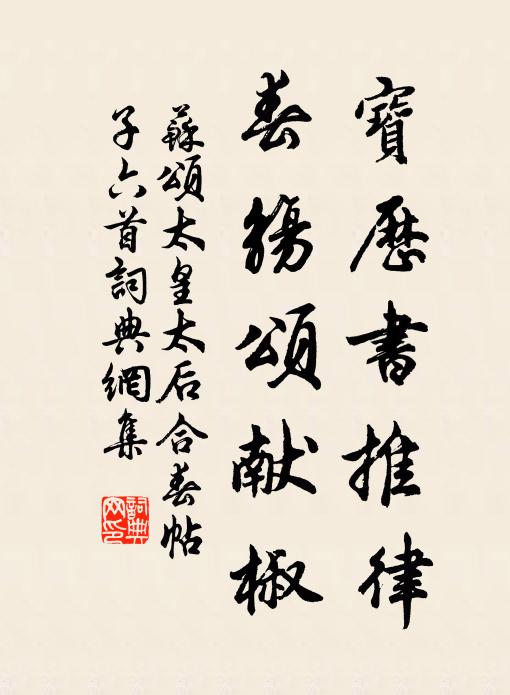 寶歷書推律
春觴頌献椒
蘇頌太皇太后合春帖
子六首詞典網集
詞典網印